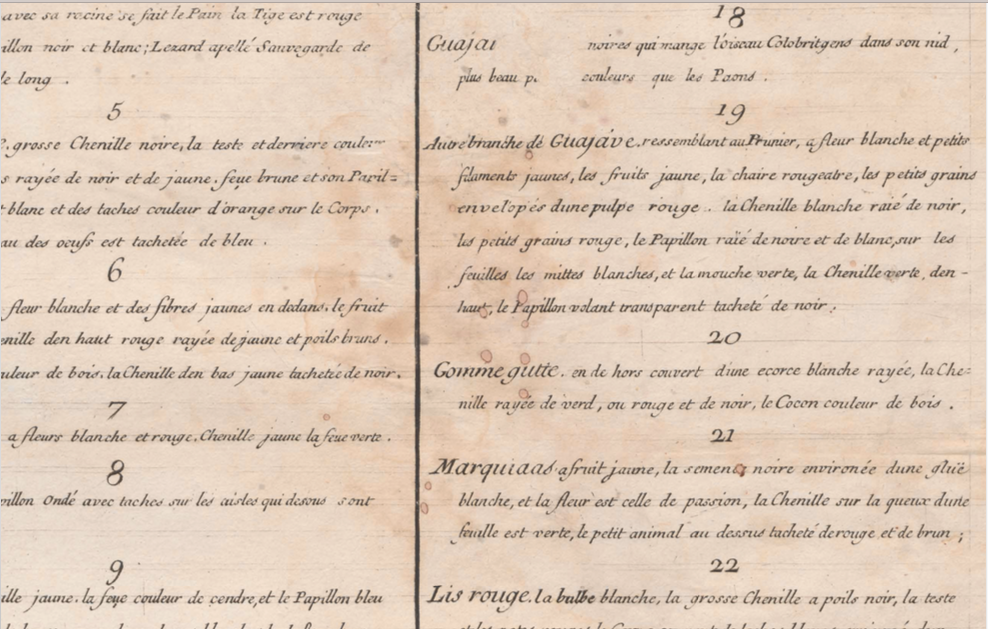 avec sa racine se fait le Pain la Tige est rouge
illon noir et blanc; Lezard apellé Sauvegarde de
de long .
5
grosse Chenille noire, la teste et derriere couleur
s rayée de noir et de jaune. feue brune et son Papil=
blanc et des taches couleur d'orange sur le Corps.
au des oeufs est tachetée de bleu .
6
fleur blanche et des fibres jaunes en dedans, le fruit
enille den haut rouge rayée de jaune et poils bruns.
uleur de bois. la Chenille den bas jaune tachetée de noir.
7
a fleurs blanche et rouge. Chenille jaune la feue verte .
8
pillon ondé avec taches sur les aisles qui desous sont
9
ille jaune. la feue couleur de cendre, et le Papillon bleu
18
Guajai noires qui mange l'oiseau Colobritgens dans son nid ,
plus beau p. couleurs que les Paons .
19
Autre branche de Guajáve. ressemblant au Prunier, a fleur blanche et petits
filaments jaunes, les fruits jaune, la chaire rougeatre, les petits grains
envelopés dune pulpe rouge . la Chenille blanche raié de noir,
les petits grains rouge, le Papillon raïé de noire et de blanc, sur les
feuilles les mittes blanches, et la mouche verte, la Chenille verte den-
haut, le Papillon volant transparent tacheté de noir .
20
Gomme gutte. en de hors couvert d'une ecorce blanche rayée, la Che=
nille rayée de verd, ou rouge et de noir, le Cocon couleur de bois .
21
Marquiaas a fruit jaune, la semence noire environée dune glüe
blanche, et la fleur est celle de passion, la Chenille sur la queux dune
feuille est verte, le petit animal au dessus tacheté de rouge et de brun ;
22
Lis rouge. la bulbe blanche, la grosse Chenille a poils noir, la teste